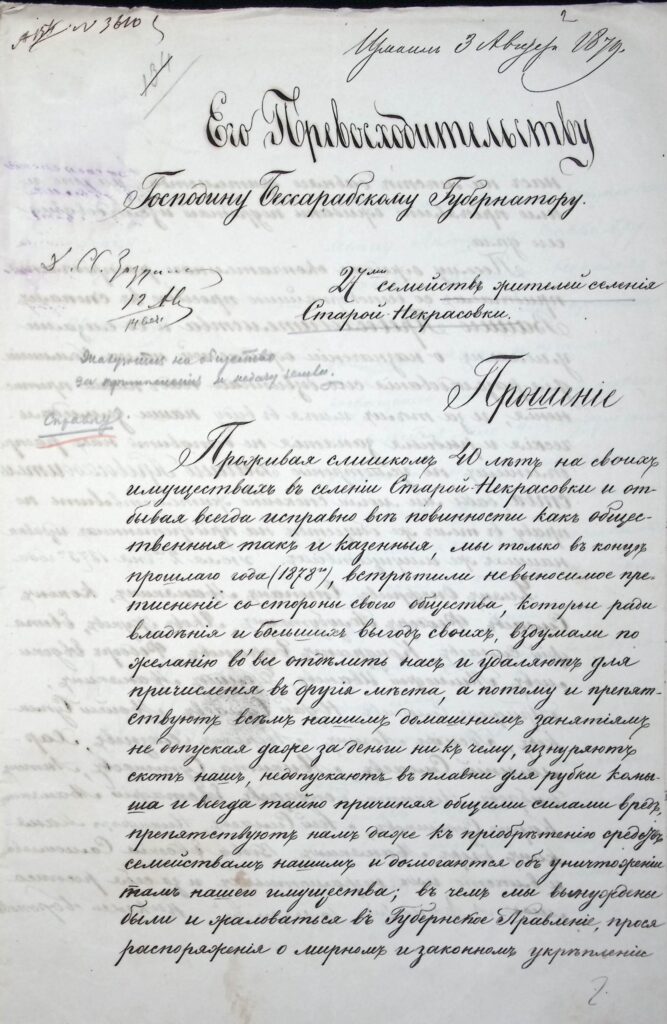 № 3610
Измаилъ 3 Августа 1879.
184
Его Превосходительству
Господину Бессарабскому Губернатору.
12 Ав
27ми семействъ жителей селенія
Старой-Некрасовки.
Жалуются на общество
за притѣсненія и
Справку.
Прошеніе
Проживая слишкомъ 40 лѣтъ на своихъ
имуществахъ въ селеніи Старой-Некрасовки и от-
бывая всегда исправно всѣ повинности какъ общес-
твенныя такъ и казенныя, мы только въ концѣ
прошлаго года (1878го), встрѣтили невыносимое при-
тисненіе со стороны своего общества, которые ради
владѣнія и большихъ выгодъ своихъ, вздумали по
желанію вовсе отдѣлить насъ и удаляютъ для
причисленія въ другія мѣста, а потому и препят-
ствуютъ всѣмъ нашимъ домашнимъ занятіямъ
не допуская даже за деньги ни къ чему, изнуряютъ
скотъ нашъ, недопускаютъ въ плавни для рубки камы-
ша и всегда тайно причиняя общими силами вредъ,
препятствуютъ намъ даже къ пріобрѣтенію средствъ
семействамъ нашимъ и домогаются объ уничтоженіи
тамъ нашего имущества; въ чемъ мы вынуждены
были и жаловаться въ Губернское Правленіе, прося
распоряженія о мирномъ и законномъ укрѣпленіи